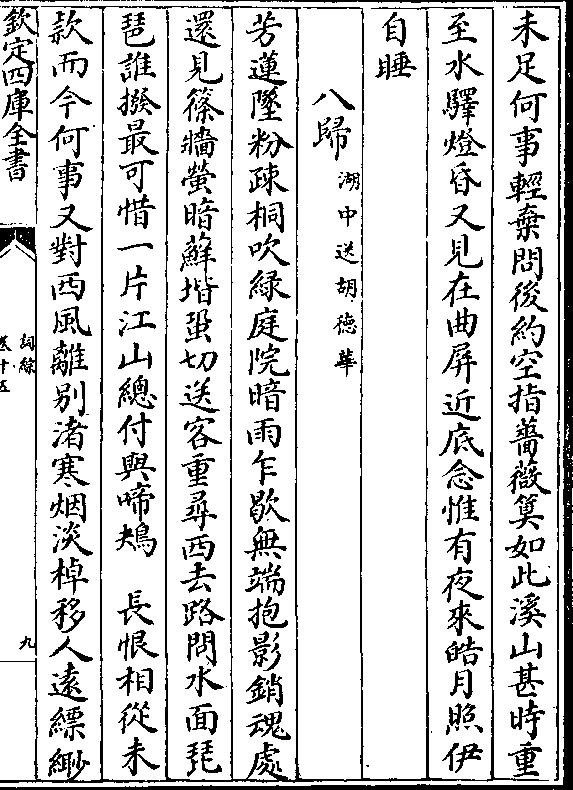 未足何事輕棄問後約空指薔薇算如此溪山甚時重
至水驛燈昏又見在曲屏近底念惟有夜來皓月照伊
自睡
八歸 湖中送胡德華
芳蓮墜粉疎桐吹綠庭院暗雨乍歇無端抱影銷魂處
還見篠牆螢暗蘚堦蛩切送客重尋西去路問水面琵
琶誰撥最可惜一片江山總付與啼鴂 長恨相從未
款而今何事又對西風離别渚寒烟淡棹移人遠縹緲
欽定四庫全書
詞綜
卷十五
九